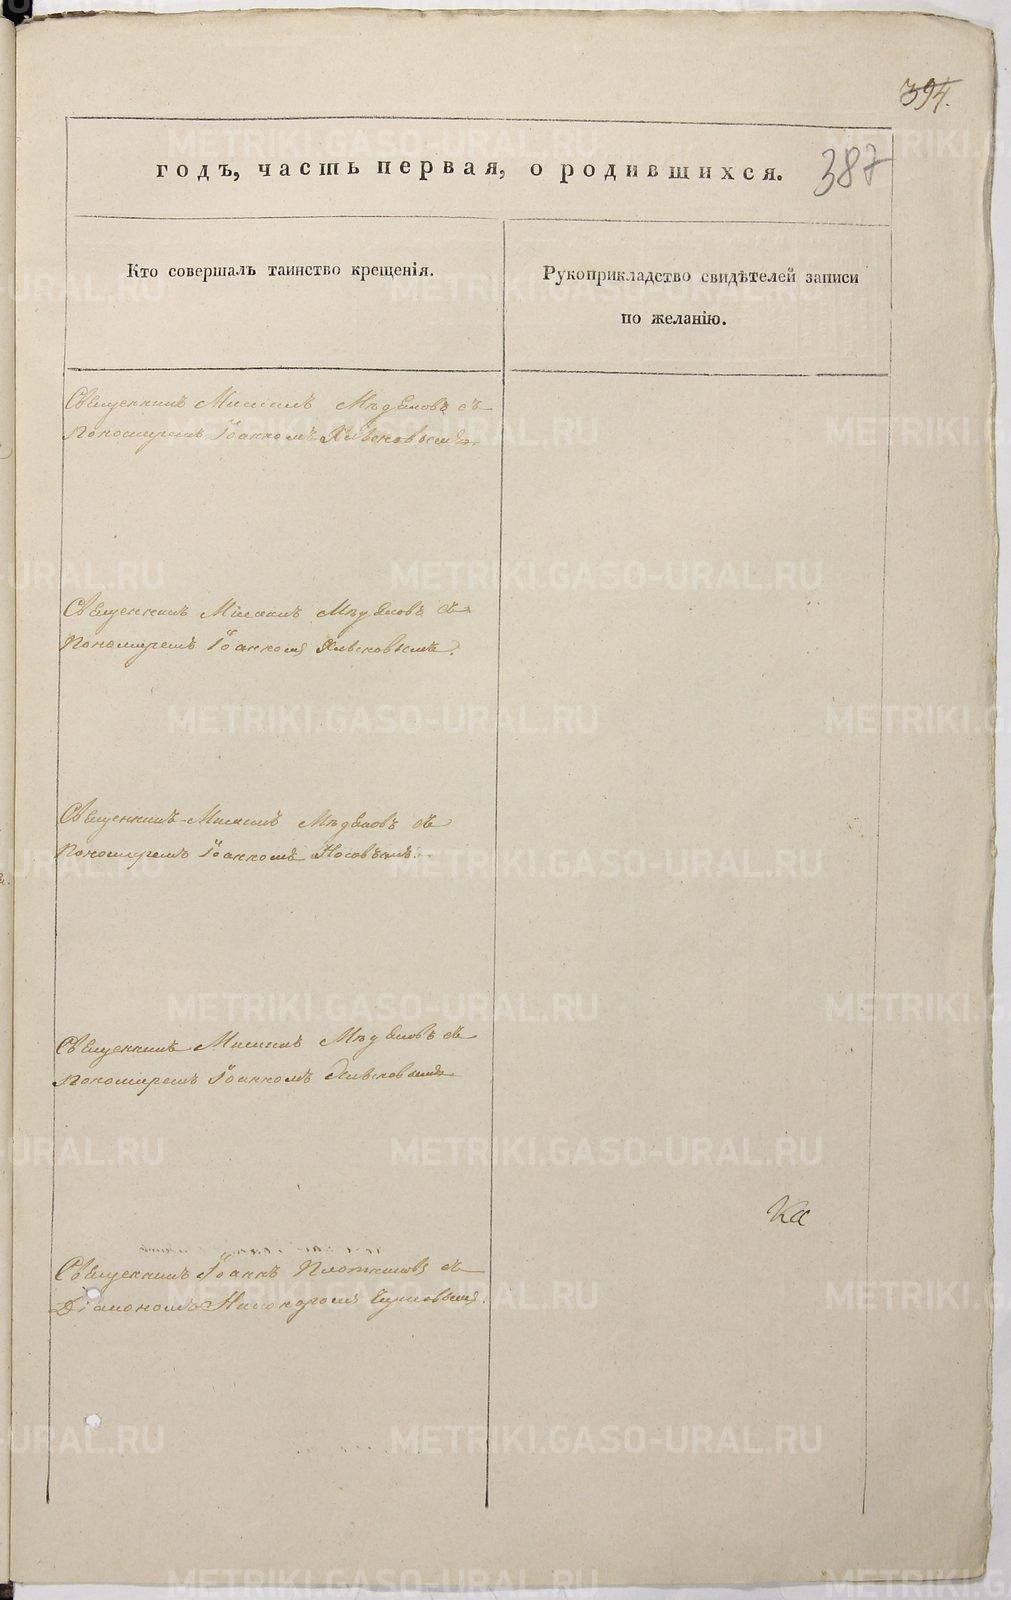 394.
387
годъ, часть первая, о родившихся.
Кто совершалъ таинство крещенія.
Рукоприкладство свидѣтелей записи
по желанію.
Священникъ Михаилъ съ
пономаремъ Іоанномъ
Священникъ Михаилъ съ
пономаремъ Іоанномъ
Священникъ Михаилъ съ
пономаремъ Іоанномъ Носовымъ.
Священникъ Михаилъ съ
пономаремъ Іоанномъ
Ка
Священникъ Іоаннъ Плотниковъ съ
Діакономъ
METRIKI.GASO-URAL.RU